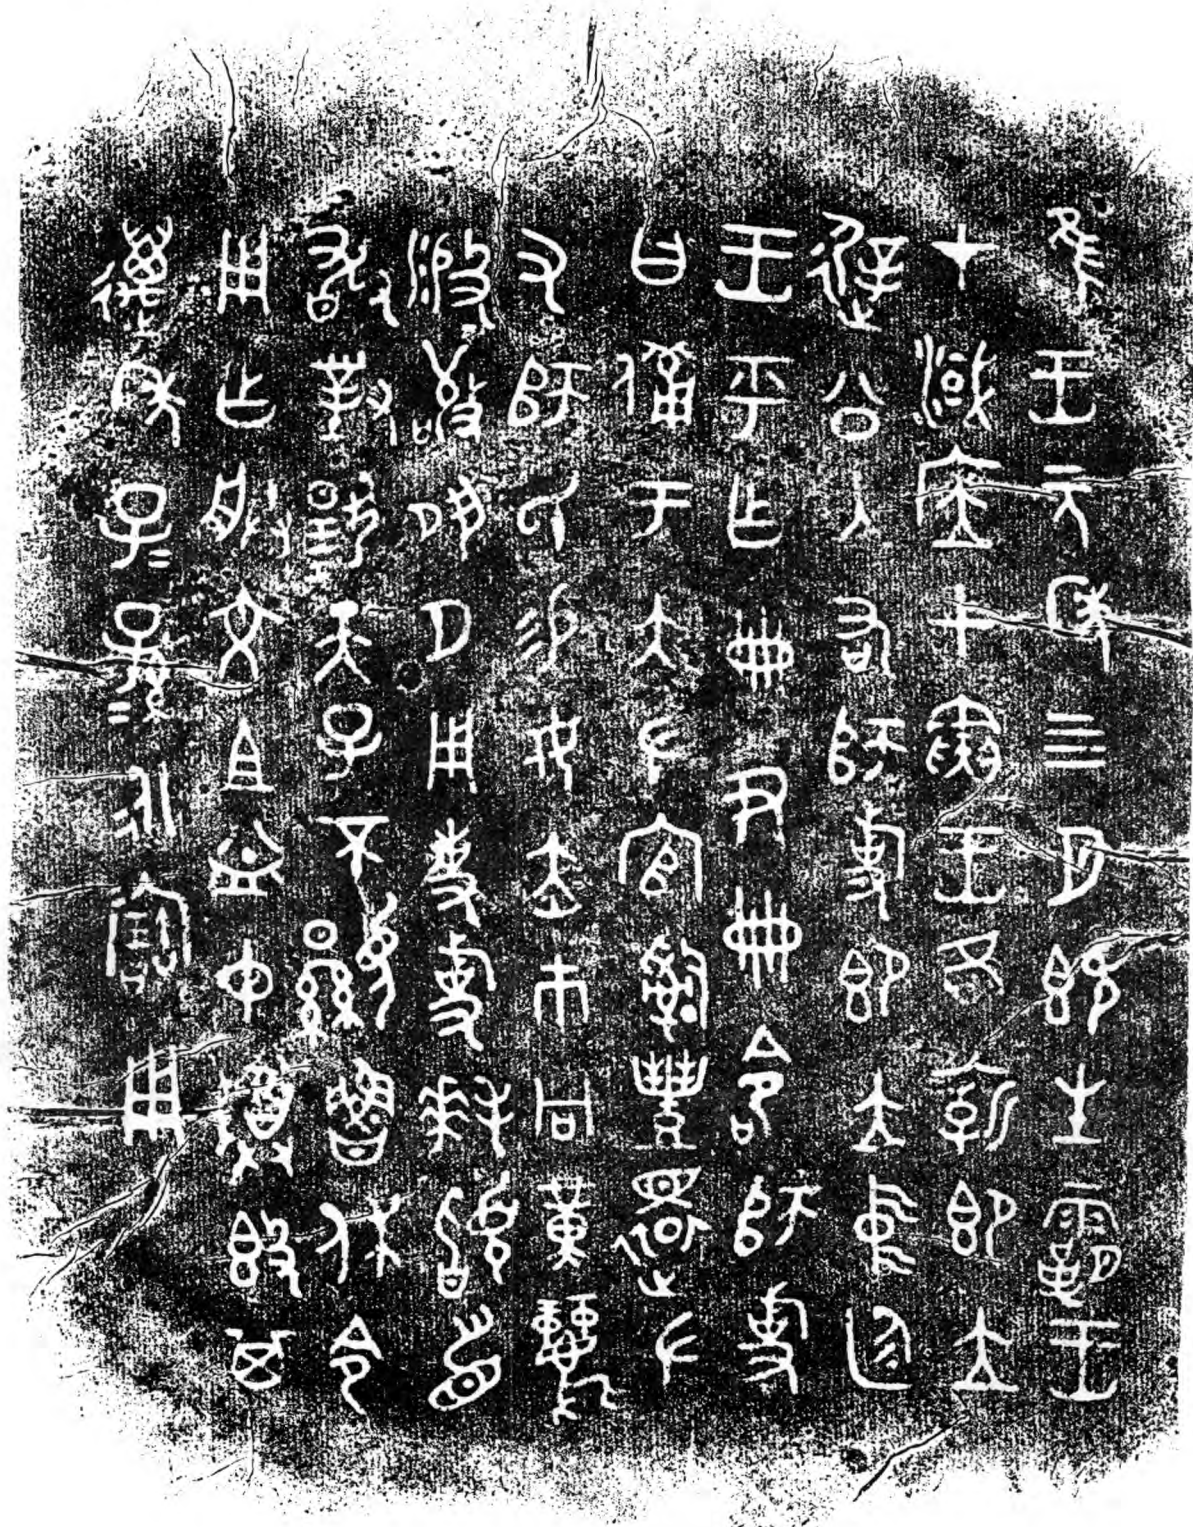 隹王元年四月既生霸王
才淢应甲寅王各廟即立
遟公入右師旋即立中廷
王乎乍冊尹冊命師旋
曰備于大左官𤔲豐還左
又師氏易女赤巿冋黃麗
般敬夙夕用事旋拜𩒨首
敢對揚天子不顯魯休命
用乍朕文且益中尊𣪘其
萬年子=孫=永寶用